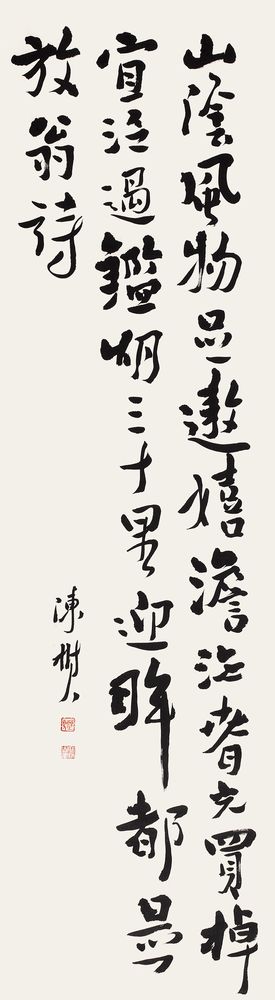 山陰風物足遨嬉澹沱春光買棹
宜泛過鑑湖三十里迎眸都是
放翁詩
陳樹人